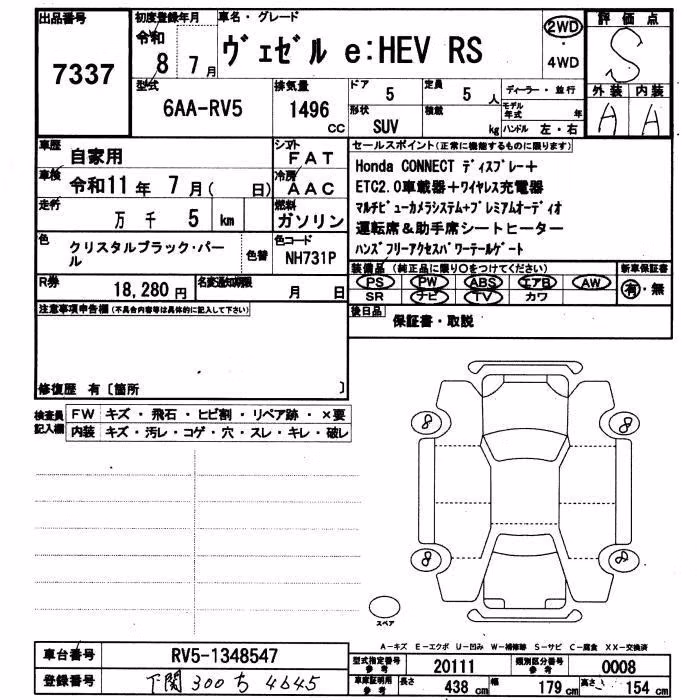 出品番号
7337
初度登録年月
令和
8 7月
車名・グレード
ヴェゼル e:HEV RS
2WD
・
4WD
評価点
S
外装 内装
A A
型式
6AA-RV5
排気量
1496
CC
ドア
5
定員
5 人
形状
SUV
積載
kg
ディーラー・並行
モデル年式 年
ハンドル 左・右
車歴
自家用
シフト
FAT
車検
令和11年 7月( 日)
冷房
AAC
走行
万 千 5 km
燃料
ガソリン
色
クリスタルブラック・パール
色替
色コード
NH731P
R券
18,280 円
名変通知期限
月 日
セールスポイント(正常に機能するものに限ります)
Honda CONNECT ディスプレー+
ETC2.0車載器+ワイヤレス充電器
マルチビューカメラシステム+プレミアムオーディオ
運転席&助手席シートヒーター
ハンズフリーアクセスパワーテールゲート
装備品(純正品に限り○をつけてください)
PS PW ABS エアB AW
SR ナビ TV カワ
新車保証書
有・無
後日品
保証書・取説
注意事項申告欄(不具合内容等は具体的に記入して下さい)
修復歴 有〔箇所 〕
検査員記入欄
FW キズ・飛石・ヒビ割・リペア跡・×要
内装 キズ・汚レ・コゲ・穴・スレ・キレ・破レ
8 8
8 8
スペア
A-キズ E-エクボ U-凹み W-補修跡 S-サビ C-腐食 XX-交換済
車台番号
RV5-1348547
登録番号
下関 300 ち 4645
型式指定番号
参考
20111
類別区分番号
参考
0008
車庫証明用
参考
長さ 438 cm 幅 179 cm 高さ 154 cm